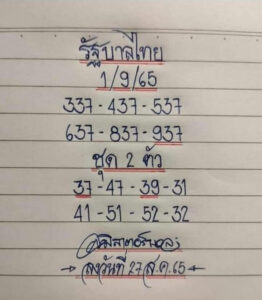 รัฐบาลไทย
1/9/65
337-437-537
637-837-937
ชุด 2 ตัว
37-47-39-31
41-51-52-32
ลงวันที่ 27 ส.ค. 65